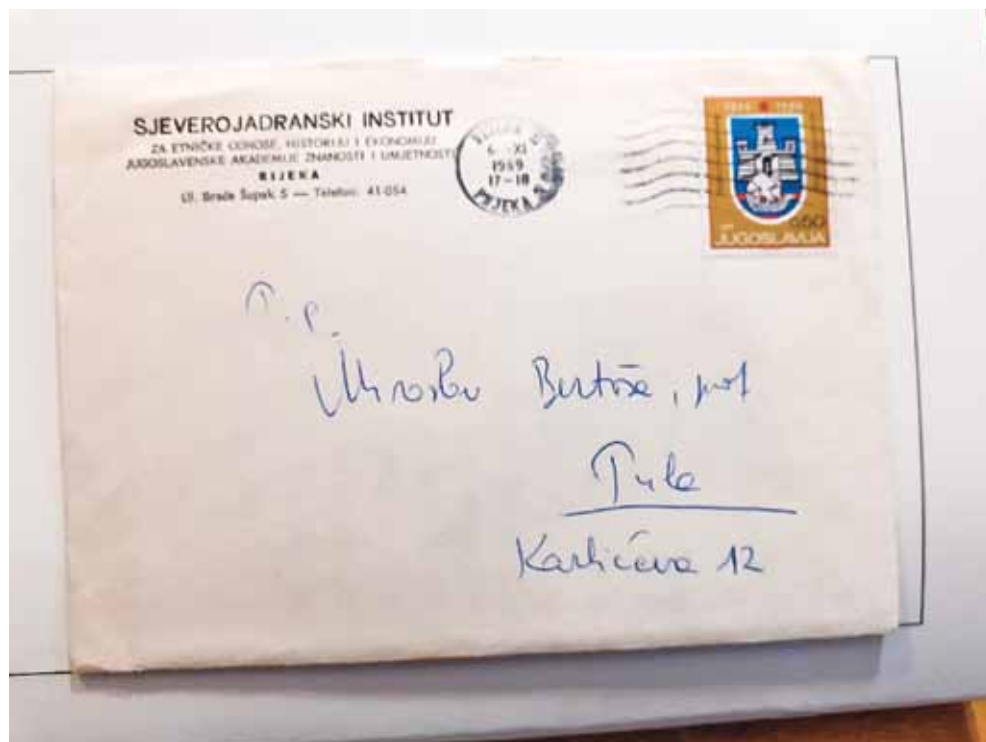 SJEVEROJADRANSKI INSTITUT
ZA ETNIČKE ODNOSE, HISTORIJU I EKONOMIJU
JUGOSLAVENSKE AKADEMIJE ZNANOSTI I UMJETNOSTI
RIJEKA
Ul. Braće Šupak 5 — Telefon: 41-054
6 XI
1969
17-18
RIJEKA
1944 1969
0,50
JUGOSLAVIJA
T. P.
Miroslav Bertoša, prof
Pula
Karlićeva 12